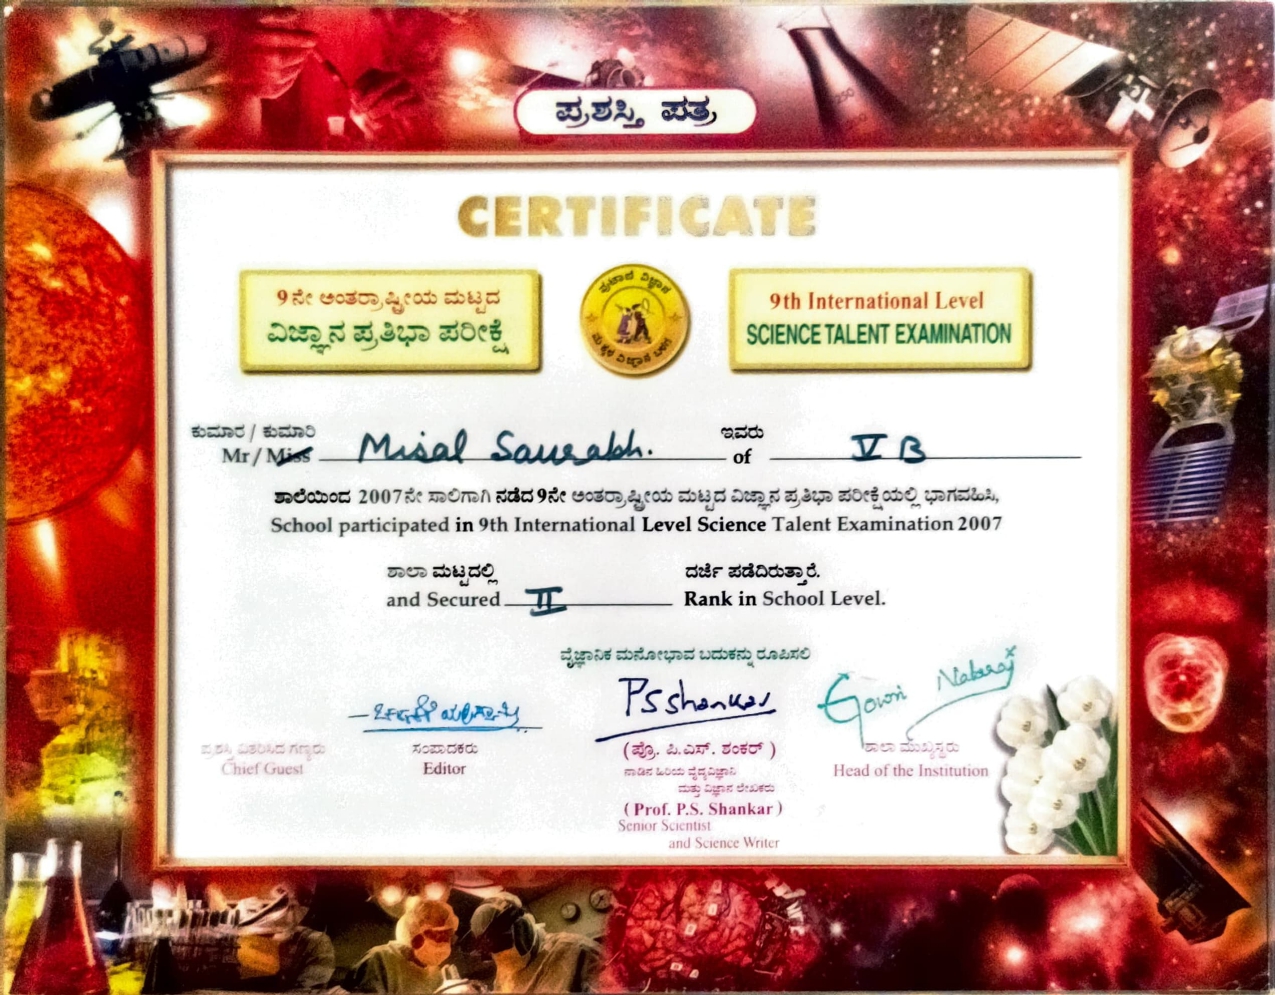 ಪ್ರಶಸ್ತಿ ಪತ್ರ
CERTIFICATE
9ನೇ ಅಂತರ್ರಾಷ್ಟ್ರೀಯ ಮಟ್ಟದ
ವಿಜ್ಞಾನ ಪ್ರತಿಭಾ ಪರೀಕ್ಷೆ
9th International Level
SCIENCE TALENT EXAMINATION
ಕುಮಾರ / ಕುಮಾರಿ ಇವರು
Mr / Miss Misal Saurabh. of V B
ಶಾಲೆಯಿಂದ 2007ನೇ ಸಾಲಿಗಾಗಿ ನಡೆದ 9ನೇ ಅಂತರ್ರಾಷ್ಟ್ರೀಯ ಮಟ್ಟದ ವಿಜ್ಞಾನ ಪ್ರತಿಭಾ ಪರೀಕ್ಷೆಯಲ್ಲಿ ಭಾಗವಹಿಸಿ,
School participated in 9th International Level Science Talent Examination 2007
ಶಾಲಾ ಮಟ್ಟದಲ್ಲಿ ದರ್ಜೆ ಪಡೆದಿರುತ್ತಾರೆ.
and Secured II Rank in School Level.
ವೈಜ್ಞಾನಿಕ ಮನೋಭಾವ ಬದುಕನ್ನು ರೂಪಿಸಲಿ
PSshankar
Gowri Nataraj
ಪ್ರಶಸ್ತಿ ವಿತರಿಸಿದ ಗಣ್ಯರು
Chief Guest
ಸಂಪಾದಕರು
Editor
(ಪ್ರೊ. ಪಿ.ಎಸ್. ಶಂಕರ್)
ನಾಡಿನ ಹಿರಿಯ ವೈದ್ಯವಿಜ್ಞಾನಿ
ಮತ್ತು ವಿಜ್ಞಾನ ಲೇಖಕರು
(Prof. P.S. Shankar)
Senior Scientist
and Science Writer
ಶಾಲಾ ಮುಖ್ಯಸ್ಥರು
Head of the Institution